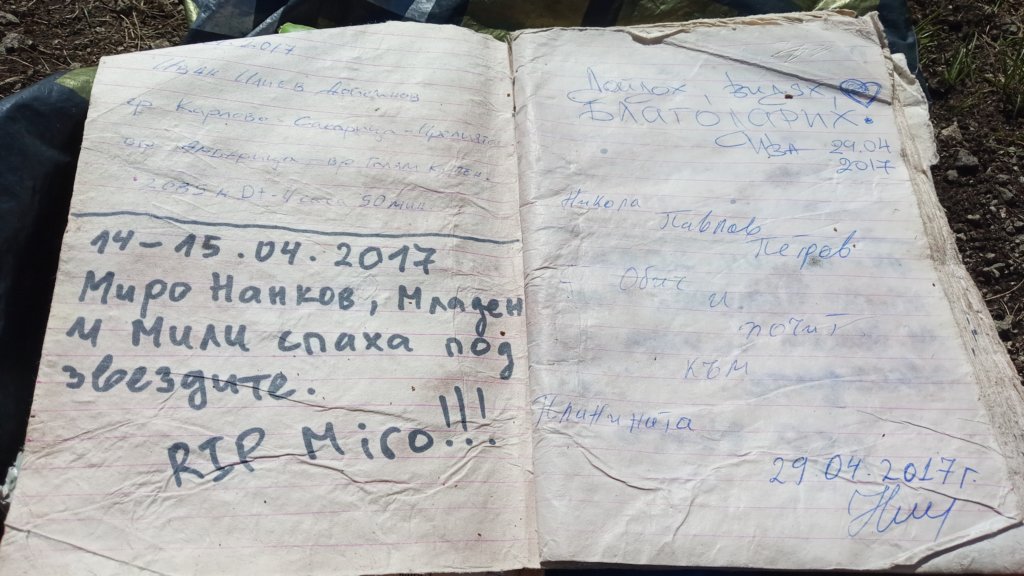 2017
Иван Илиев
гр Карлово - Сакарица -
- вр Голям Купен.
D+ - 4 часа 50 мин
14-15.04.2017
Миро Нанков, Младен
И Мили спаха под
звездите.
RIP Miro!!!
Дойдох, видях,
БЛАГОДАРИХ.
Иза 29.04
2017
Никола
Павлов
Петров
Обич
и
почит
към
29.04.2017г.